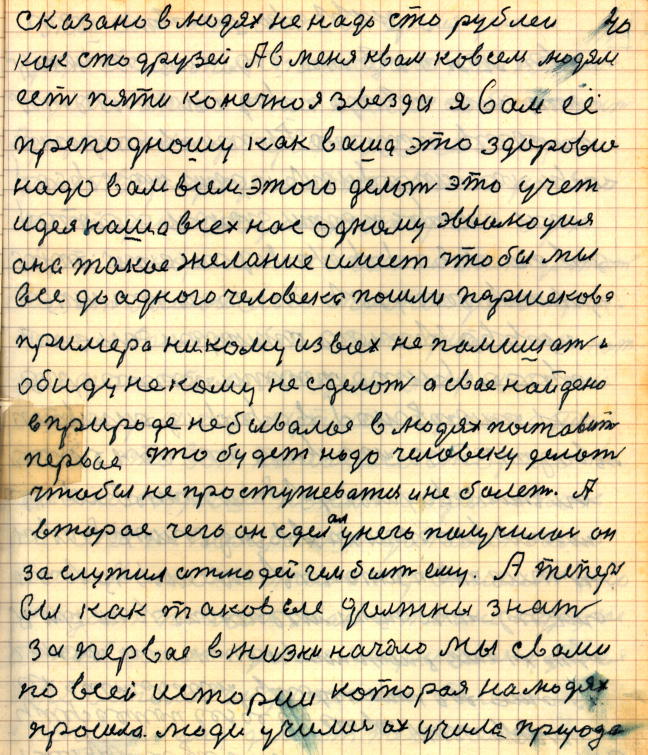 сказано в людях не надо сто рублей 40
как сто друзей А в меня к вам ко всем людям
ест пяти конечноя звезда я вам её
преподношу как ваша это здоровие
надо вам всем этого делот это учет
идея наша всех нас одному эвволюция
она такое желание имеет чтобы мы
все до адного человека пошли паршекова
примера никому из всех не памишат и
обиду не кому не сделот а свае найдено
в природе небывалое в людях поставит
первае что будет надо человеку делот
чтобы не простужеватся и не болет. А
вторае чего он сделал у него получилос он
заслужил от людей чем быт ему. А тепер
вы как таковые должны знат
за первае в жизни начало мы свами
по всей истории которая на людях
прошла. люди училис их учила природа